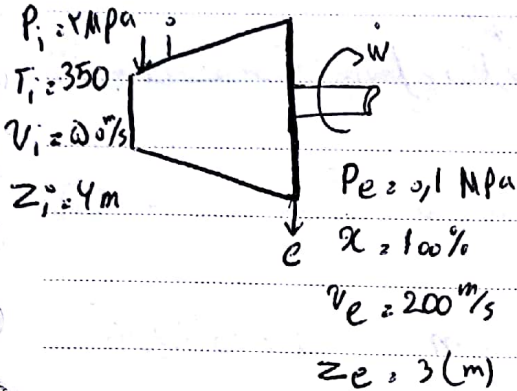 Pᵢ = ۲ MPa
i
Ẇ
Tᵢ = 350
Vᵢ = ۵۰ m/s
Zᵢ = ۶ m
Pe = ۰,۱ MPa
e
x = 100%
Ve = 200 m/s
Ze = 3 (m)